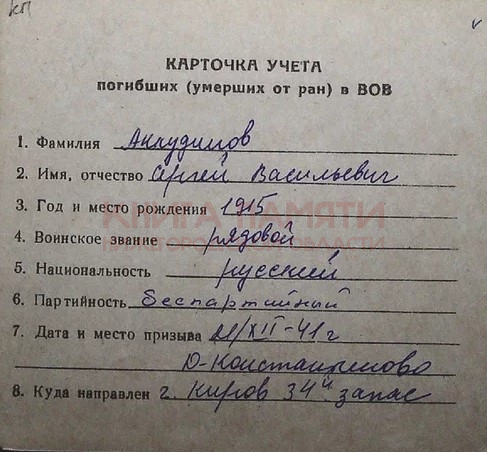 КП
КАРТОЧКА УЧЕТА
погибших (умерших от ран) в ВОВ
1. Фамилия Анкудимов
2. Имя, отчество Сергей Васильевич
3. Год и место рождения 1915
КНИГА ПАМЯТИ
4. Воинское звание рядовой
НИЖЕГОРОДСКОЙ ОБЛАСТИ
5. Национальность русский
6. Партийность беспартийный
7. Дата и место призыва 21/XII-41 г
Д-Константиново
8. Куда направлен г. Киров 34й запас